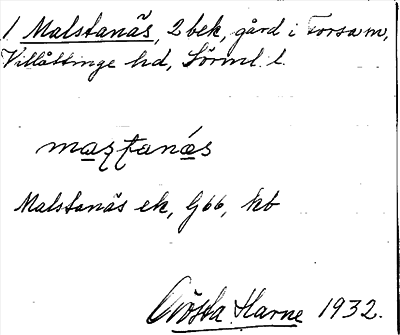 1 Malstanäs, 2 bek, gård i Forsa sn,
Villåttinge hd, Sörml. l.
mastanä́s
Malstanäs ek, G66, kb
Gösta Harne 1932.